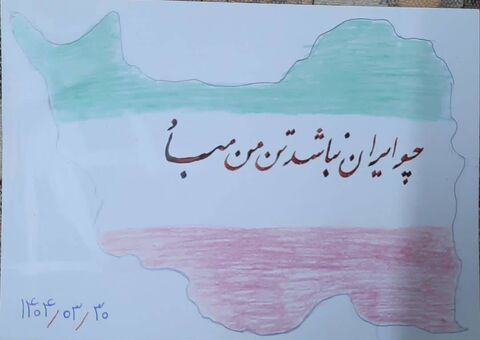 چو ایران نباشد تن من مباُ
۱۴۰۴/۰۳/۳۰